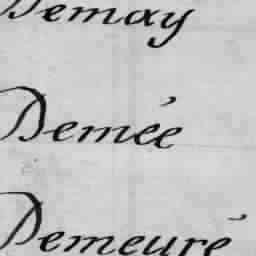 Demay
Demée
Demeuré